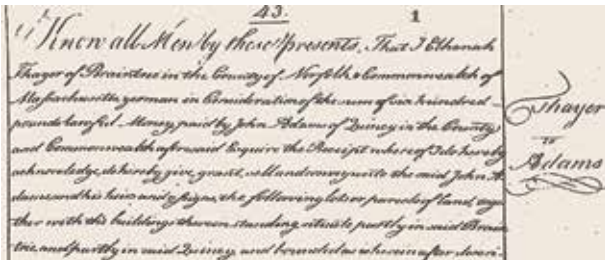 43. 1
Know all Men by these Presents, That I Elkanah
Thayer of Braintree in the County of Norfolk & Commonwealth of
Massachusetts, yeoman in Consideration of the sum of six hundred
pounds lawful Money, paid by John Adams of Quincy in the County
and Commonwealth aforesaid Esquire the Receipt whereof I do hereby
acknowledge, do hereby give, grant, sell and convey unto the said John A
dams and his heirs and assigns, the following lots or parcels of land, toge
ther with the buildings thereon standing, situate partly in said Brain
tree, and partly in said Quincy and bounded as
Thayer
to
Adams